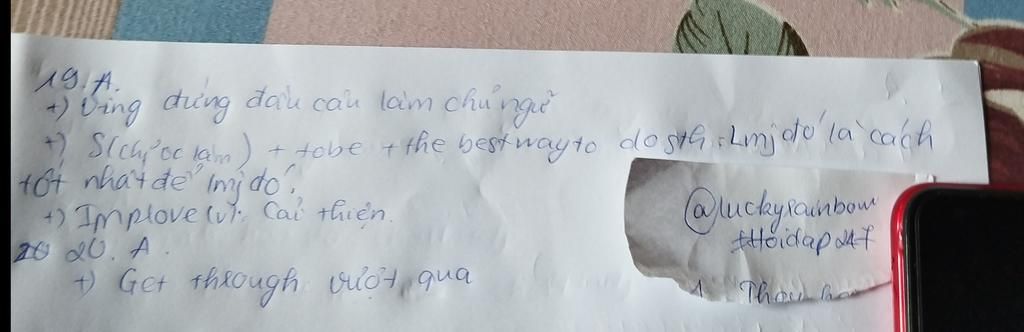 19. A.
+) Ving đứng đầu câu làm chủ ngữ
+) S(chỉ ... làm) + tobe + the best way to do sth: Lmj đó là cách
tốt nhất để lmj đó.
+) Implove (v): Cải thiện.
20. A.
+) Get through: vượt qua
@luckyrainbow
#Hoidap247
1.